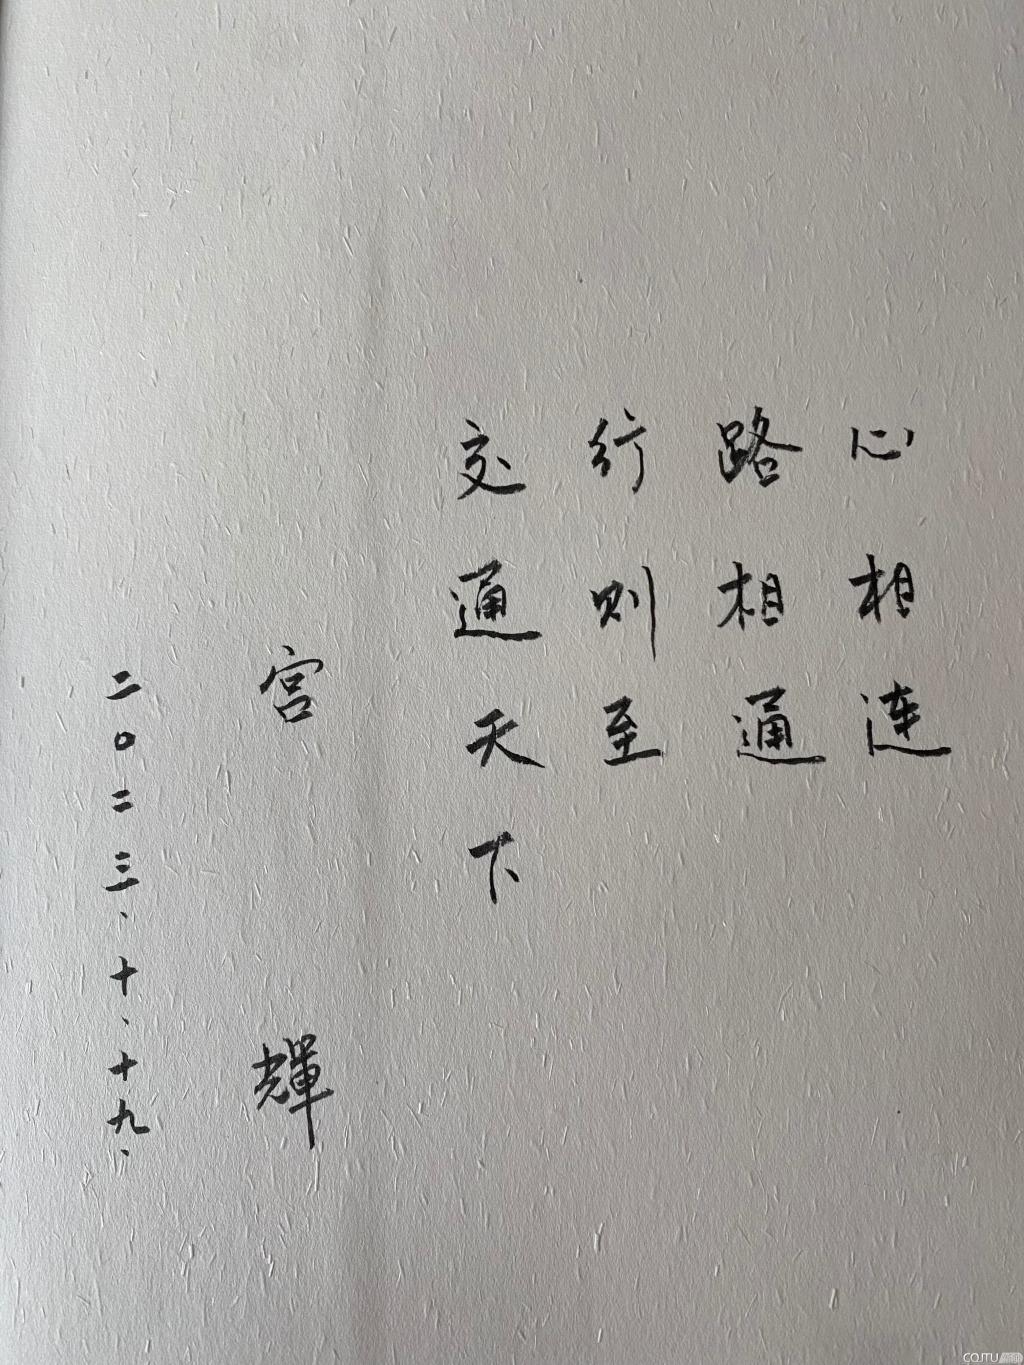 心相连
路相通
行则至
交通天下
宫
輝
二〇二三、十、十九、
COJTU